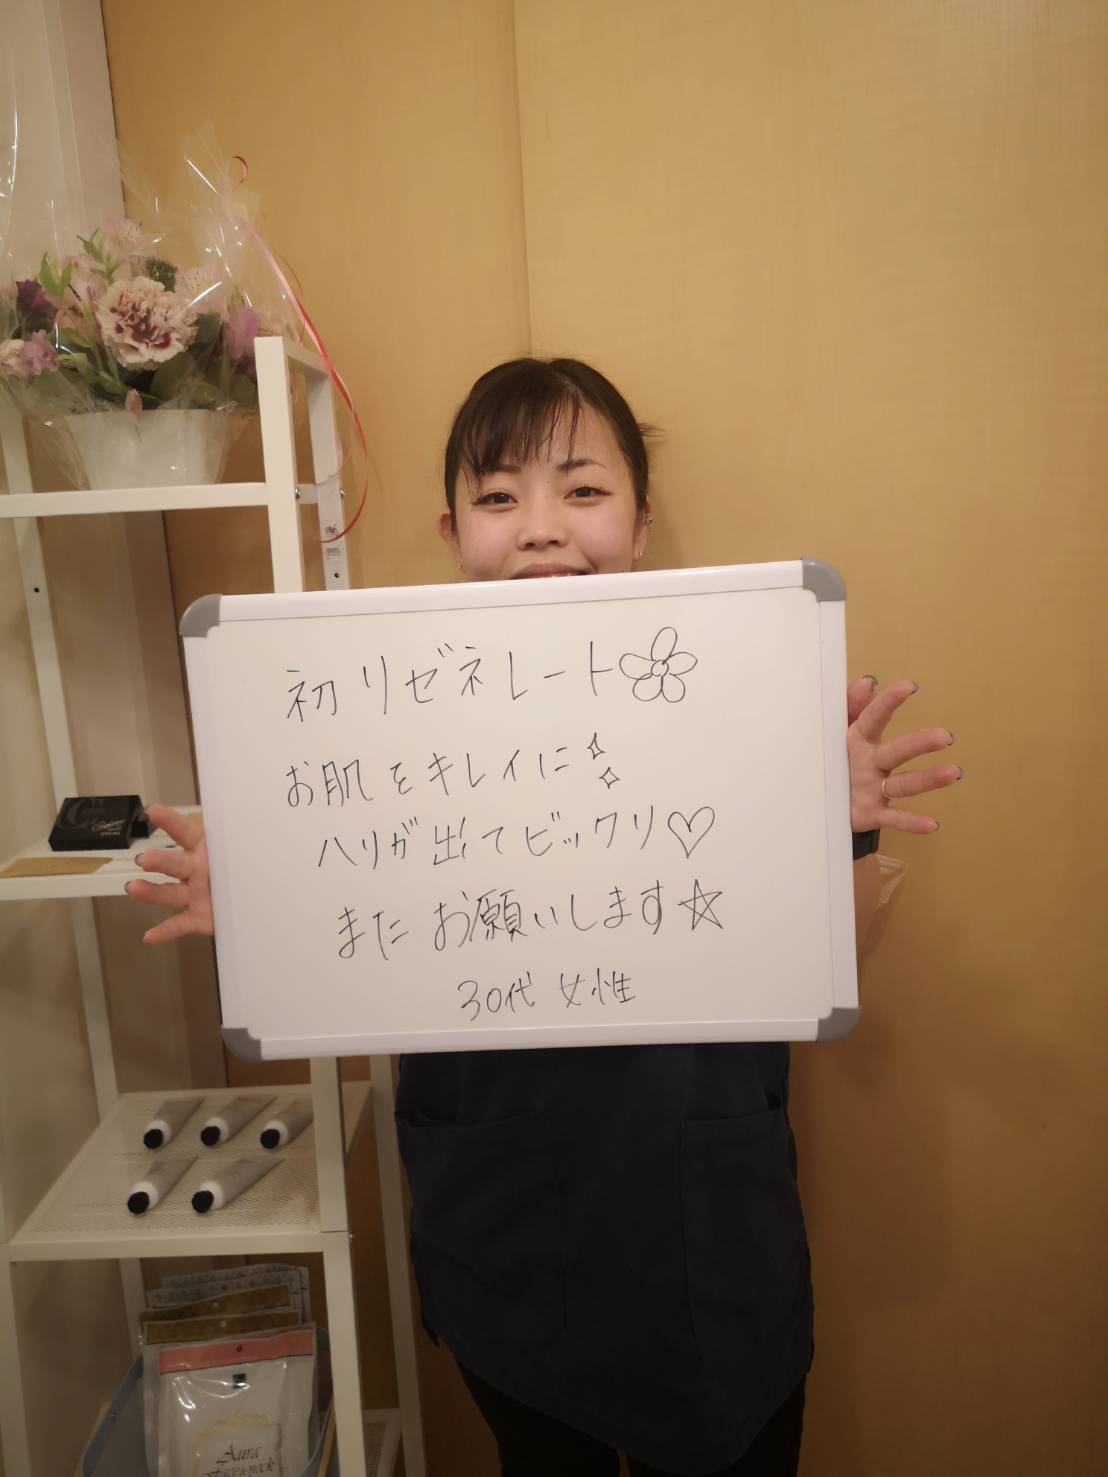 初リゼネレート
お肌をキレイに
ハリが出てビックリ♡
またお願いします☆
30代 女性
Aura
Face & neck